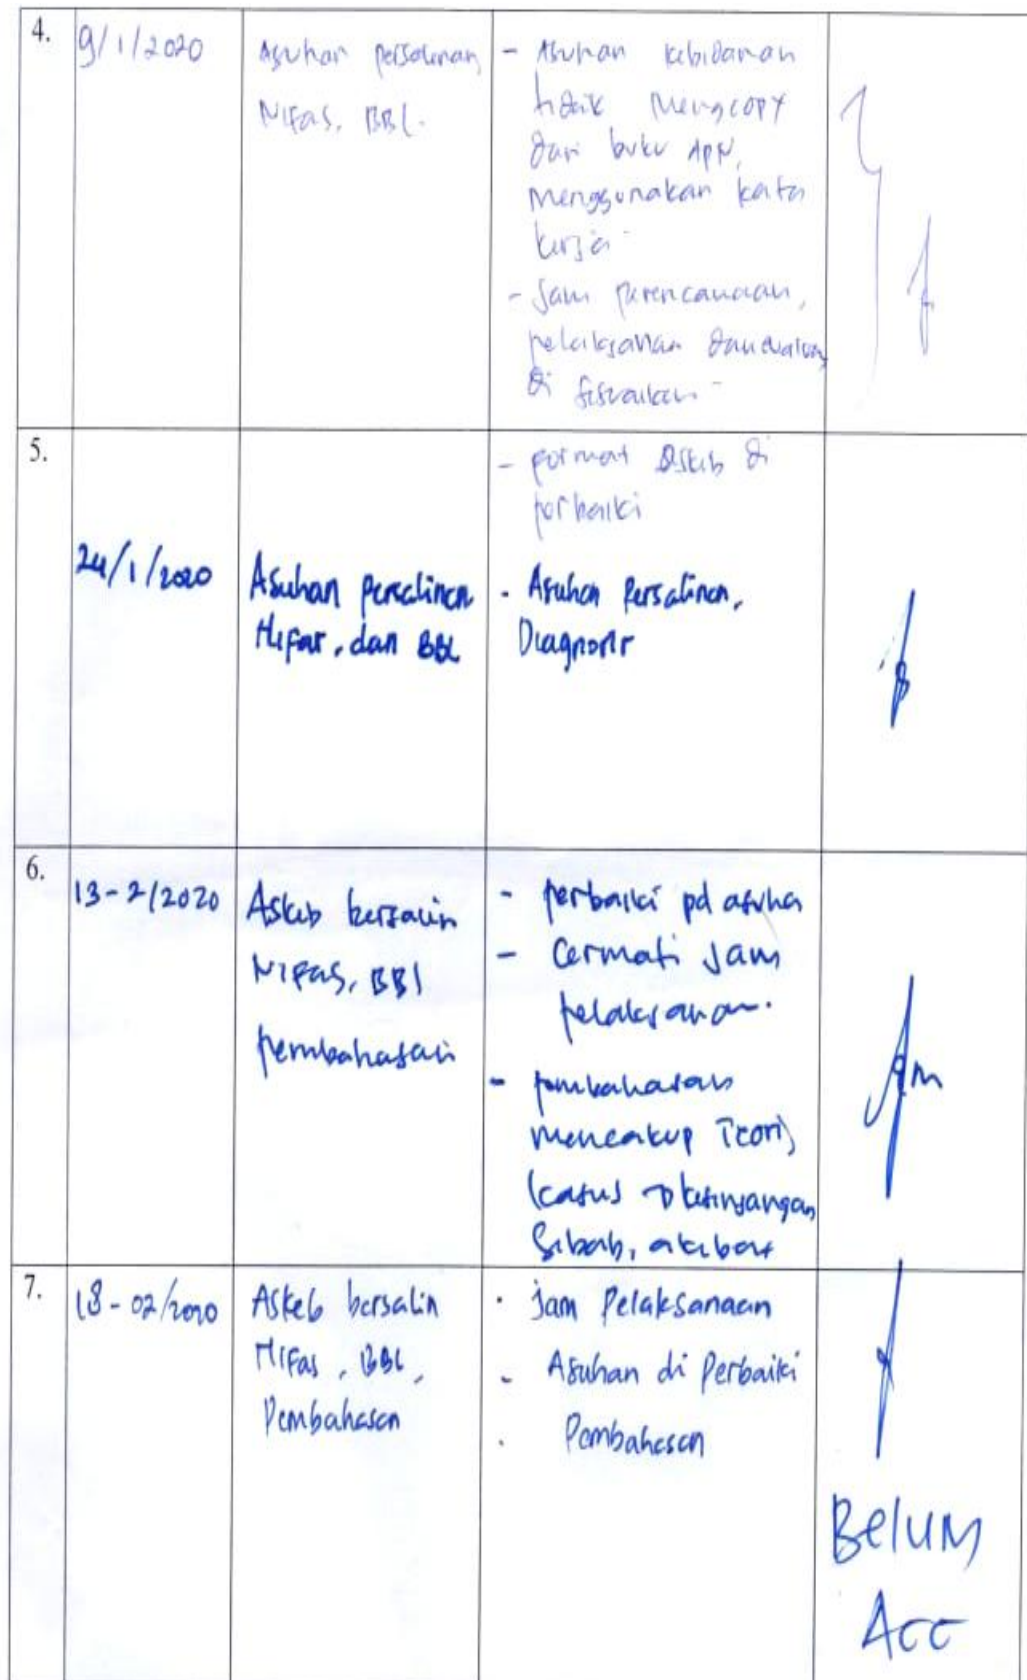 4.
9/1/2020
Asuhan persalinan,
Nifas, BBL.
- Asuhan kebidanan
tidak mengcopy
dari buku APN,
menggunakan kata
kerja -
- Jam perencanaan,
pelaksanaan dan evaluasi
di sesuaikan -
5.
- format askeb di
perbaiki
24/1/2020
Asuhan persalinan
Nifas, dan BBL
- Asuhan Persalinan,
Diagnosis
6.
13-2/2020
Askeb bersalin
Nifas, BBL
pembahasan
- perbaiki pd asuha
- Cermati jam
pelaksanaan.
- pembahasan
mencakup Teori,
kasus → kesenjangan
Sebab, akibat
7.
18-02/2020
Askeb bersalin
Nifas, BBL,
Pembahasan
. Jam Pelaksanaan
- Asuhan di Perbaiki
. Pembahasan
Belum
Acc